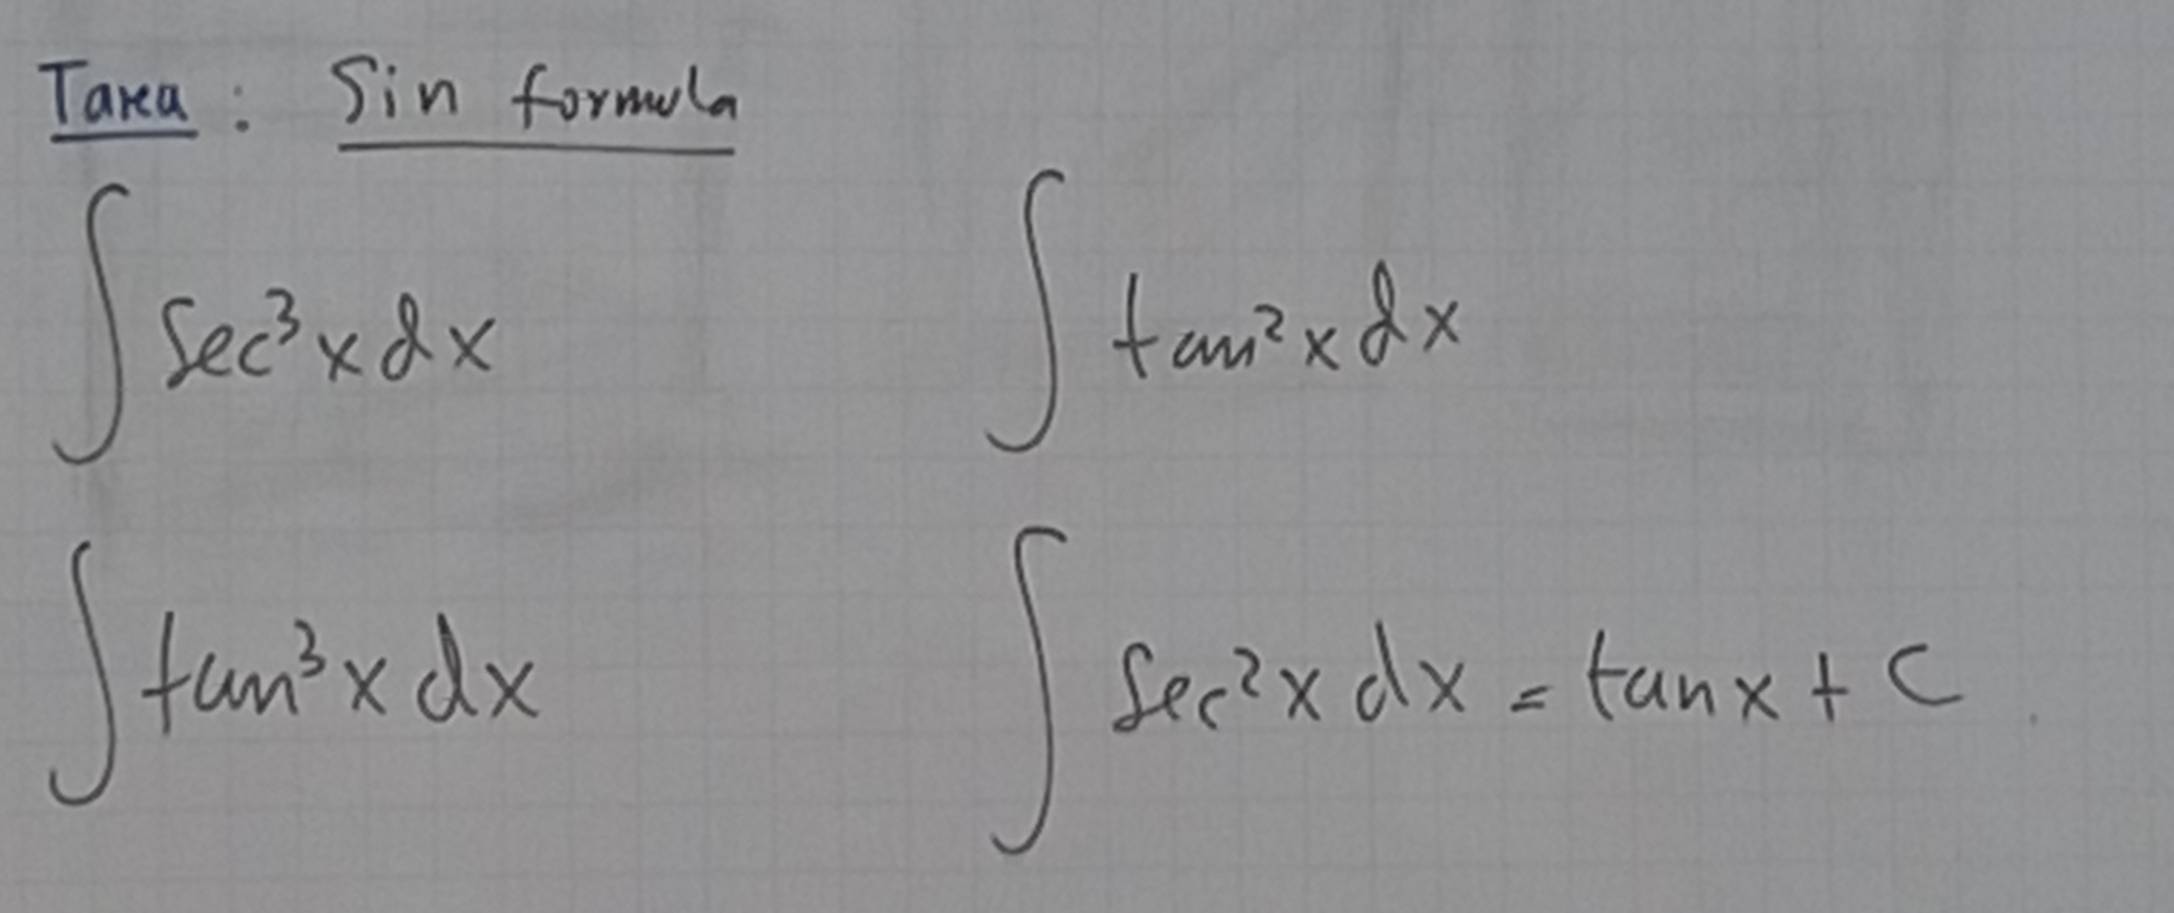 Tarea : Sin formula
∫ sec³ x dx ∫ tan² x dx
∫ tan³ x dx ∫ sec² x dx = tan x + C